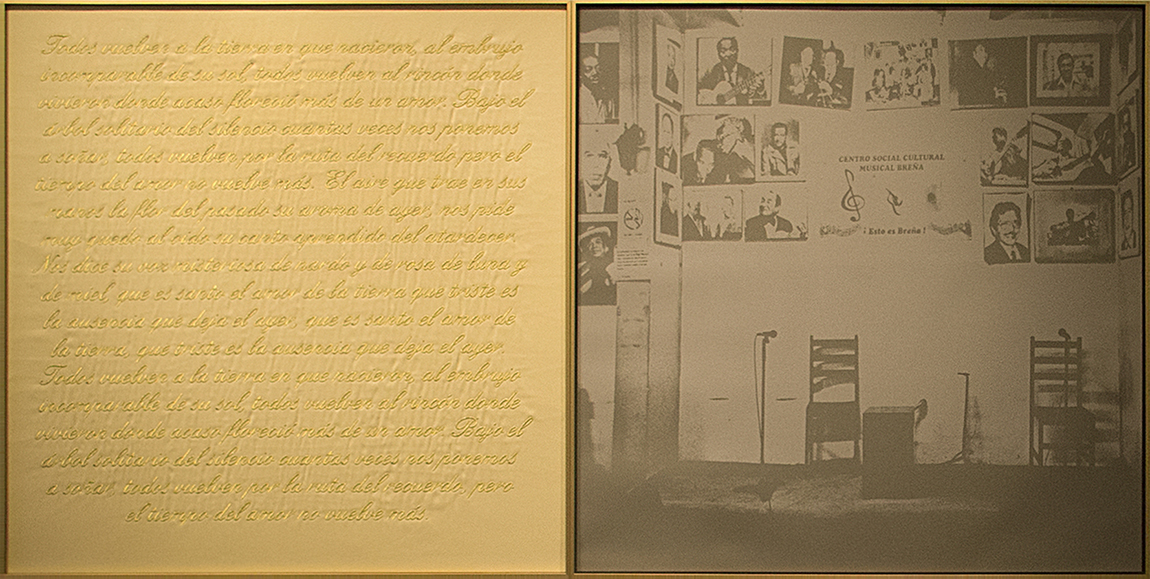 Todos vuelven a la tierra en que nacieron, al embrujo
incomparable de su sol, todos vuelven al rincón donde
vivieron donde acaso floreció más de un amor. Bajo el
árbol solitario del silencio cuantas veces nos ponemos
a soñar, todos vuelven por la ruta del recuerdo pero el
tiempo del amor no vuelve más. El aire que trae en sus
manos la flor del pasado su aroma de ayer, nos pide
muy quedo al oído su canto aprendido del atardecer.
Nos dice su voz misteriosa de nardo y de rosa de luna y
de miel, que es santo el amor de la tierra que triste es
la ausencia que deja el ayer, que es santo el amor de
la tierra, que triste es la ausencia que deja el ayer.
Todos vuelven a la tierra en que nacieron, al embrujo
incomparable de su sol, todos vuelven al rincón donde
vivieron donde acaso floreció más de un amor. Bajo el
árbol solitario del silencio cuantas veces nos ponemos
a soñar, todos vuelven por la ruta del recuerdo, pero
el tiempo del amor no vuelve más.
CENTRO SOCIAL CULTURAL
MUSICAL BREÑA
¡ Esto es Breña !